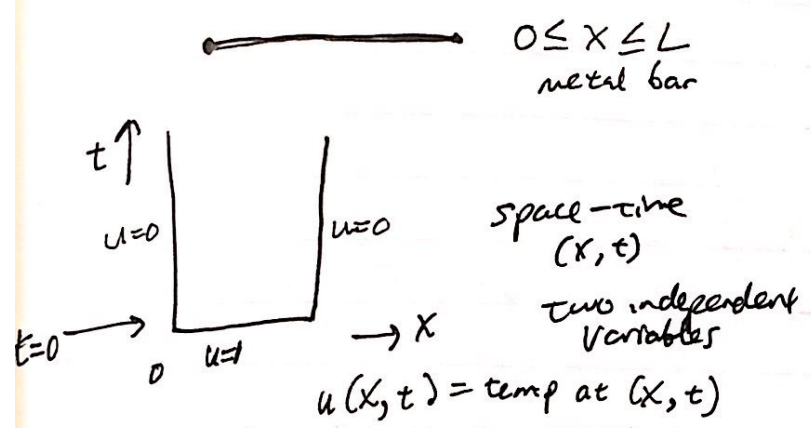 0 ≤ x ≤ L
metal bar
t
u=0
u=0
space-time
(x, t)
two independent
variables
t=0
x
0
u=1
u(x, t) = temp at (x, t)